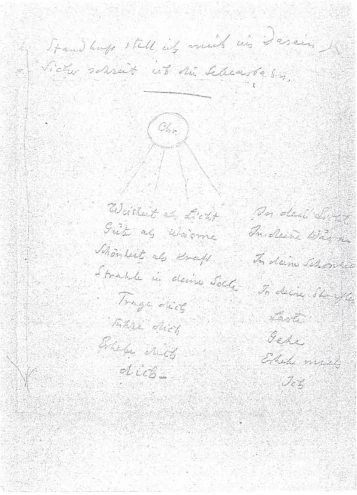 Standhaft stell ich mich ins Dasein
Sicher schreit ich die Lebensbahn.
Chr.
Weisheit als Licht
Güte als Wärme
Schönheit als Kraft
Strahle in deine Seele
Trage dich
Führe dich
Erhebe dich
dich –
In dein Licht
In deine Wärme
In deine Schönheit
In deine
Gehe
Erhebe mich
Ich